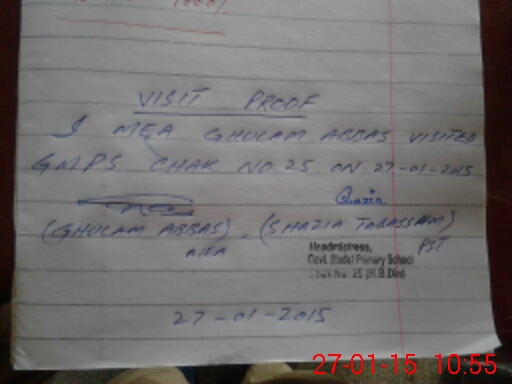 VISIT PROOF
I MEA GHULAM ABBAS VISITED
GMPS CHAK NO. 25 ON 27-01-2015
(GHULAM ABBAS), (SHAZIA TABASSUM)
MEA PST
Headmistress,
Govt. Model Primary School
Chak No. 25 (M.B.Din)
27-01-2015
27-01-15 10:55